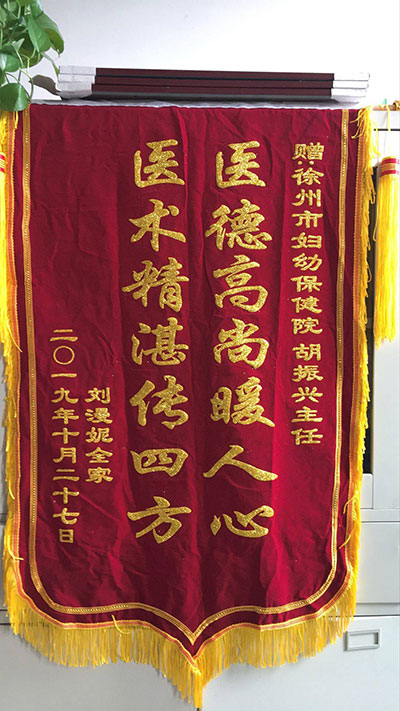 赠:徐州市妇幼保健院 胡振兴主任
医德高尚暖人心
医术精湛传四方
刘漫妮全家
二〇一九年十月二十七日